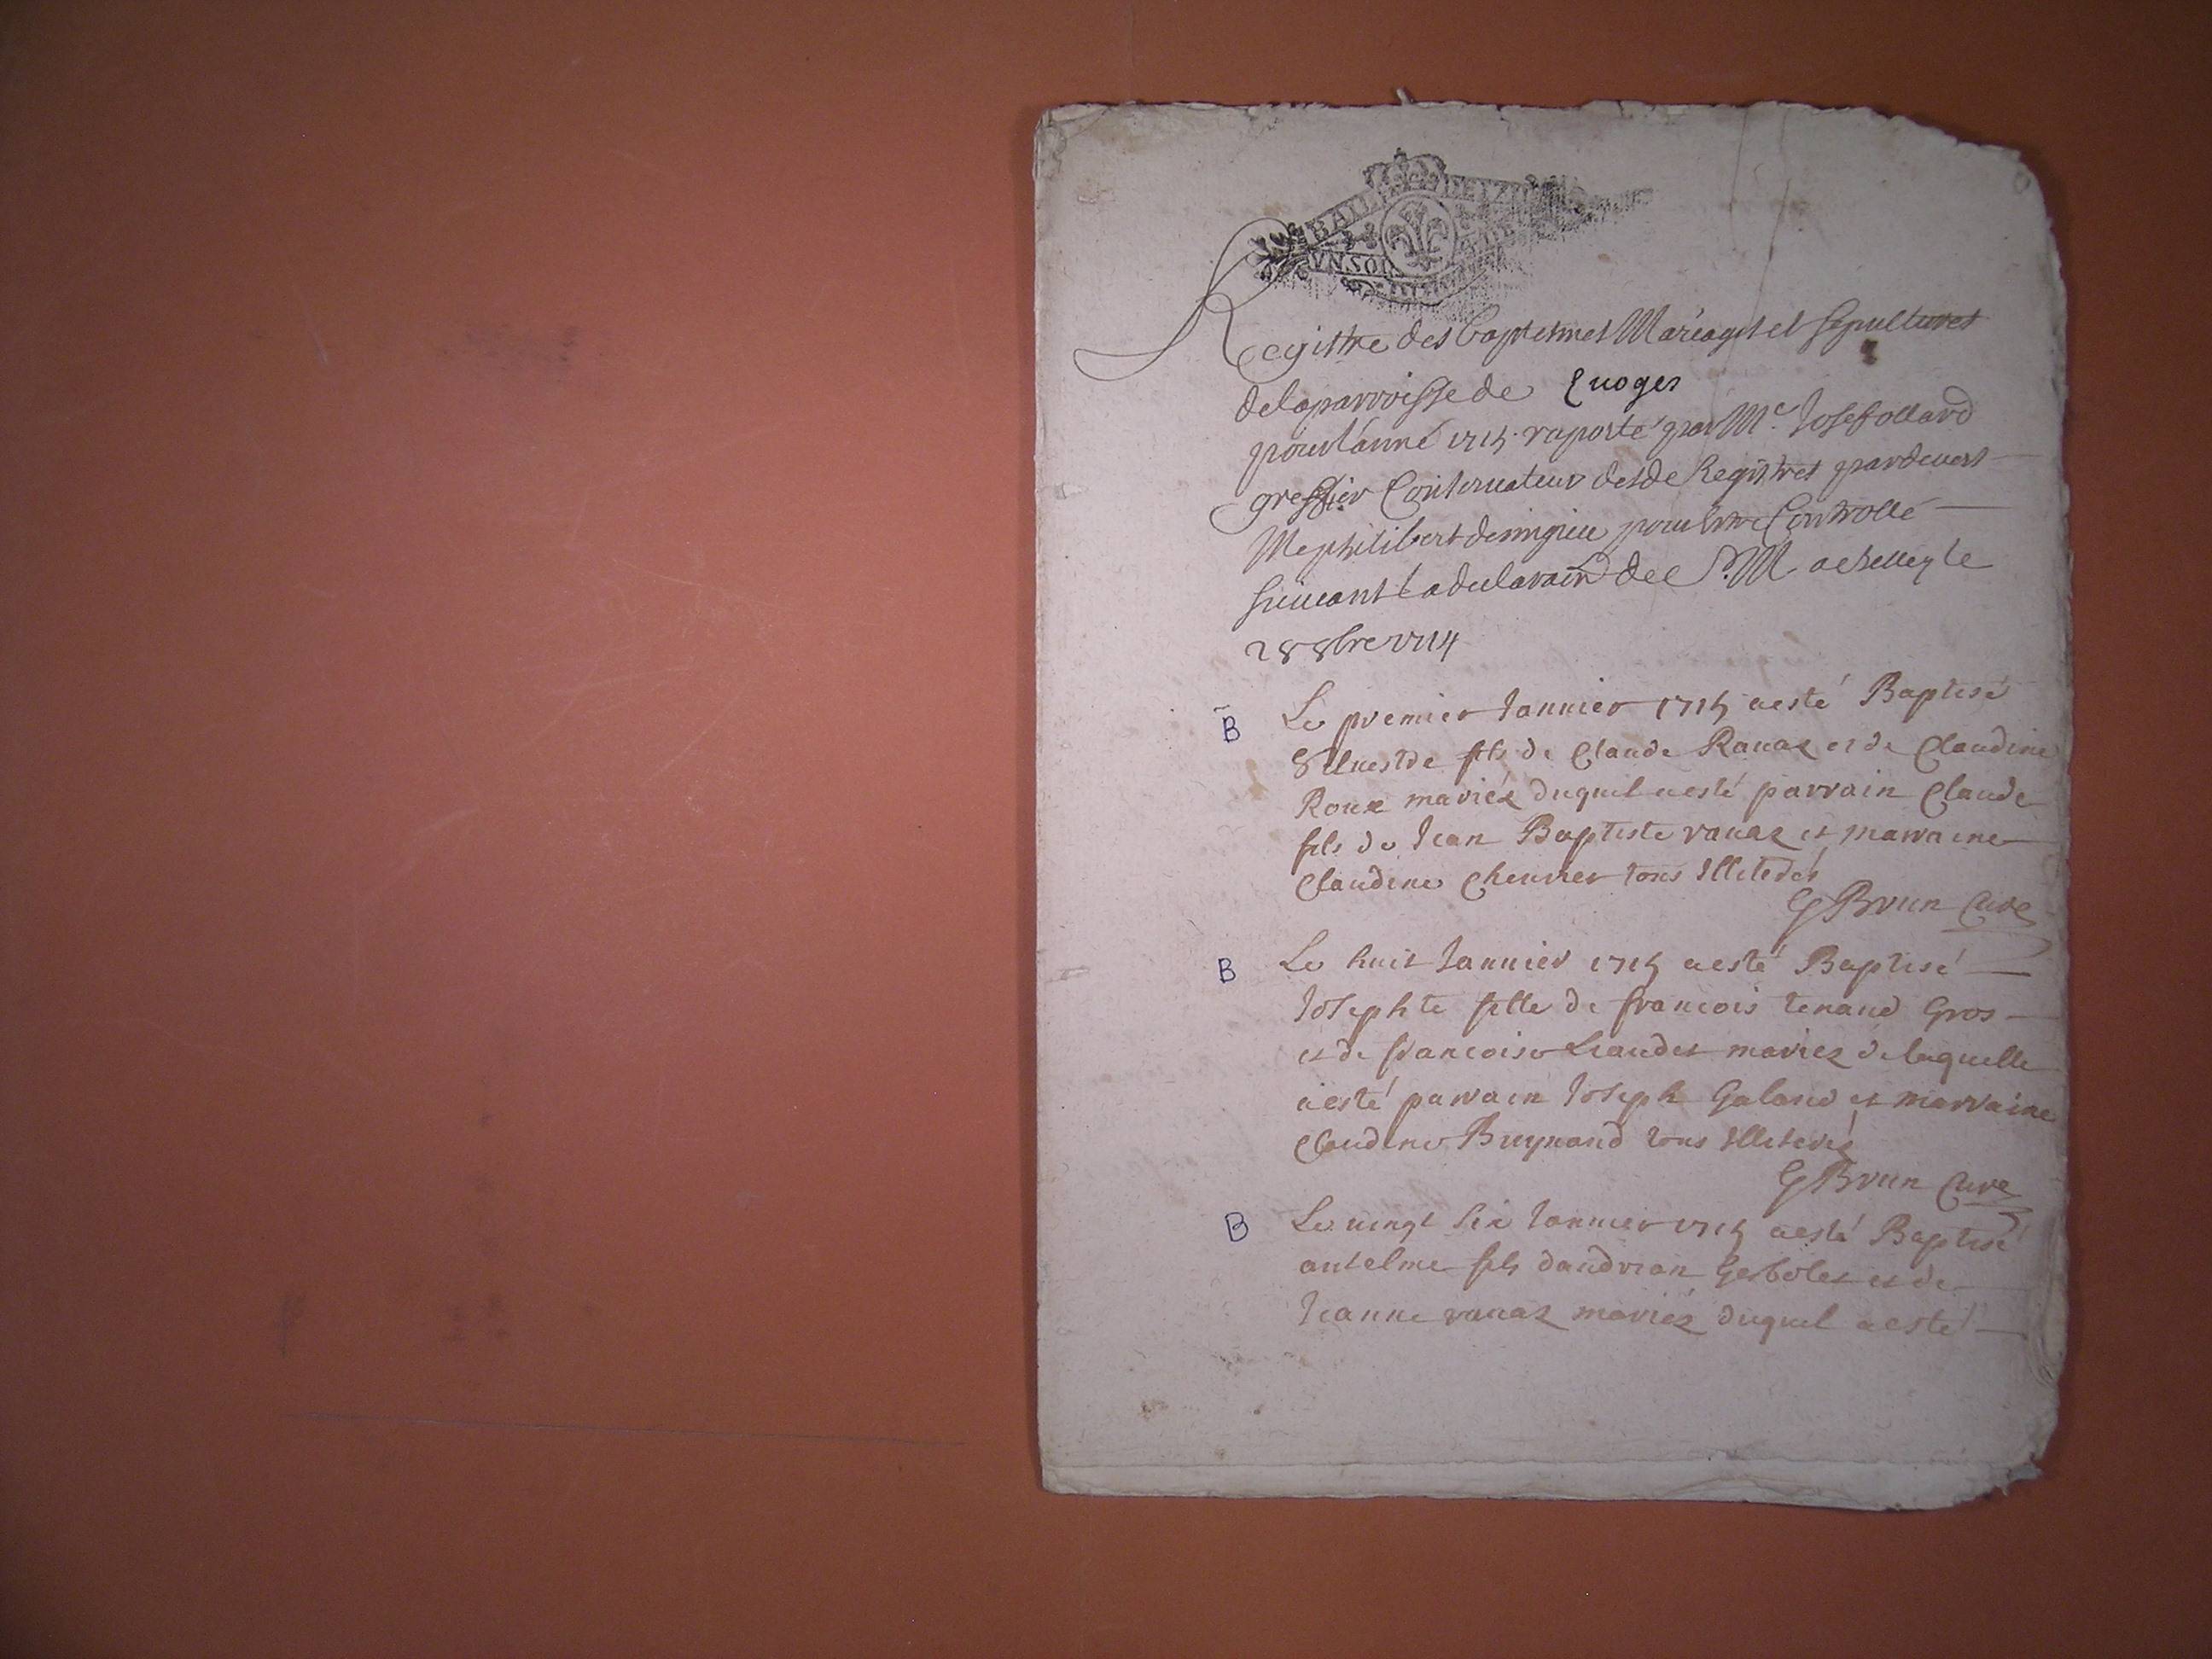 BAIL
VNSOL
Registre des baptesmes Mariages et sepultures
de la parroisse de Evoges
pour l'anné 1715 raporté par Me Josef ollard
greffier Conservateur desde Registres pardevers
Me philibert pour estre Controllé
suivant la de S. M. a belley le
28 8bre 1714
B Le premier Janvier 1715 a esté Baptisé
Silvestre fils de Claude Ravaz et de Claudine
Roux mariéz duquel a esté parrain Claude
fils de Jean Baptiste ravaz et marraine
Claudine Chevrier tous Illiterés
G Brun Curé
B Le huit Janvier 1715 a esté Baptisé
Josephte fille de francois tenand Gros
et de francoise mariez de laquelle
a esté parrain Joseph Galand et marraine
Claudine Buynand tous Illiteréz
G Brun Curé
B Le vingt six Janvier 1715 a esté Baptisé
antelme fils dandrian Gerbolet et de
Jeanne ravaz mariéz duquel a esté